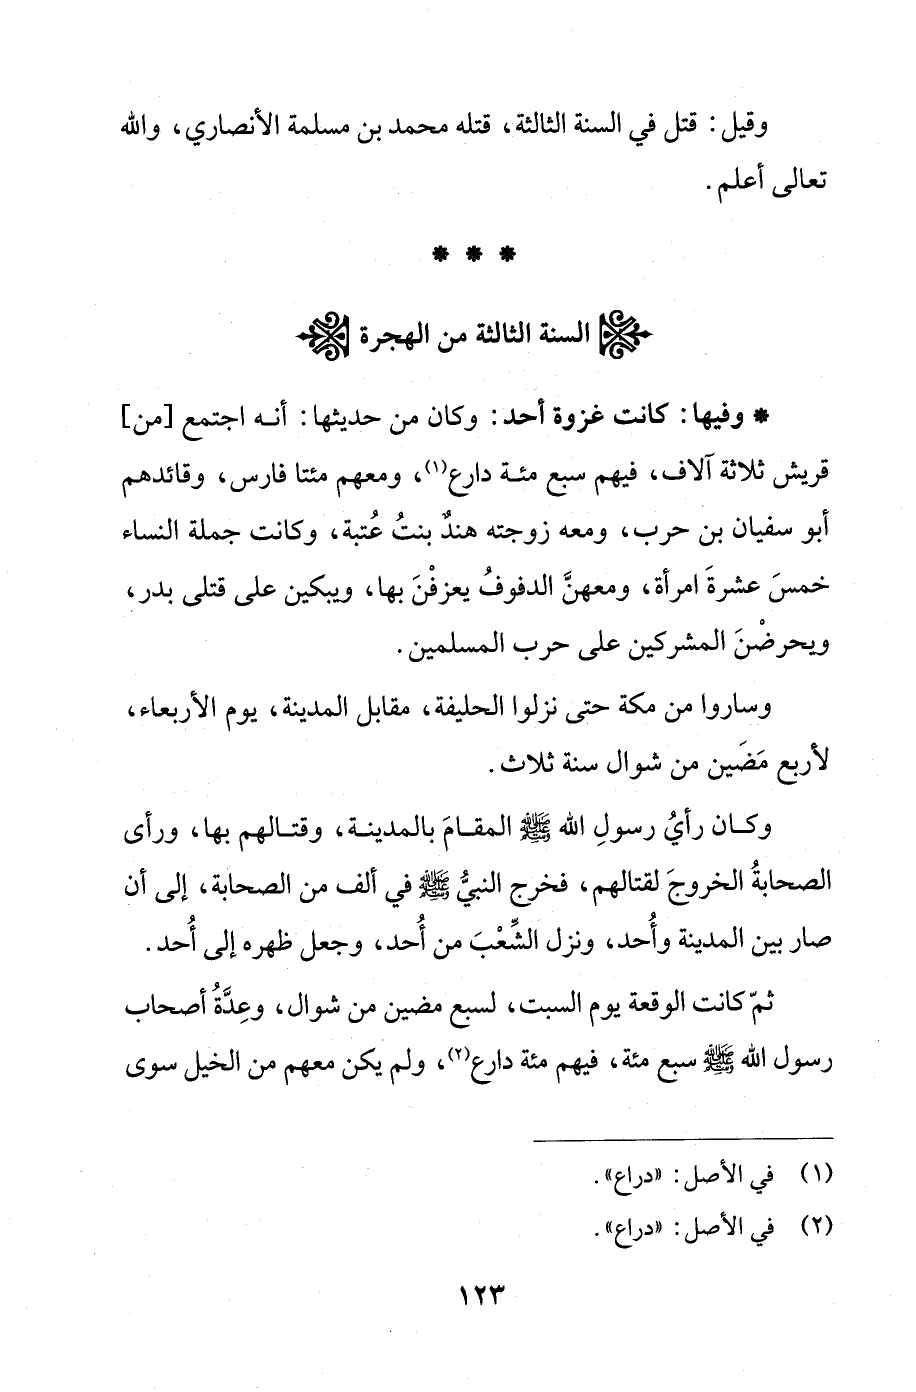 وقيل: قتل في السنة الثالثة، قتله محمد بن مسلمة الأنصاري، والله
تعالى أعلم.
* * *
السنة الثالثة من الهجرة
* وفيها: كانت غزوة أحد: وكان من حديثها: أنـه اجتمع [من]
قريش ثلاثة آلاف، فيهم سبع مئـة دارع(١)، ومعهم مئتا فارس، وقائدهم
أبو سفيان بن حرب، ومعه زوجته هندٌ بنتُ عُتبة، وكانت جملة النساء
خمسَ عشرةَ امرأة، ومعهنَّ الدفوفُ يعزفْنَ بها، ويبكين على قتلى بدر،
ويحرضْنَ المشركين على حرب المسلمين.
وساروا من مكة حتى نزلوا الحليفة، مقابل المدينة، يوم الأربعاء،
لأربع مَضَين من شوال سنة ثلاث.
وكـان رأيُ رسولِ الله ﷺ المقامَ بالمدينـة، وقتـالهم بها، ورأى
الصحابةُ الخروجَ لقتالهم، فخرج النبيُّ ﷺ في ألف من الصحابة، إلى أن
صار بين المدينة وأُحد، ونزل الشِّعْبَ من أُحد، وجعل ظهره إلى أُحد.
ثمّ كانت الوقعة يوم السبت، لسبع مضين من شوال، وعِدَّةُ أصحاب
رسول الله ﷺ سبع مئة، فيهم مئة دارع(٢)، ولم يكن معهم من الخيل سوى
(١) في الأصل: «دراع».
(٢) في الأصل: «دراع».
١٢٣